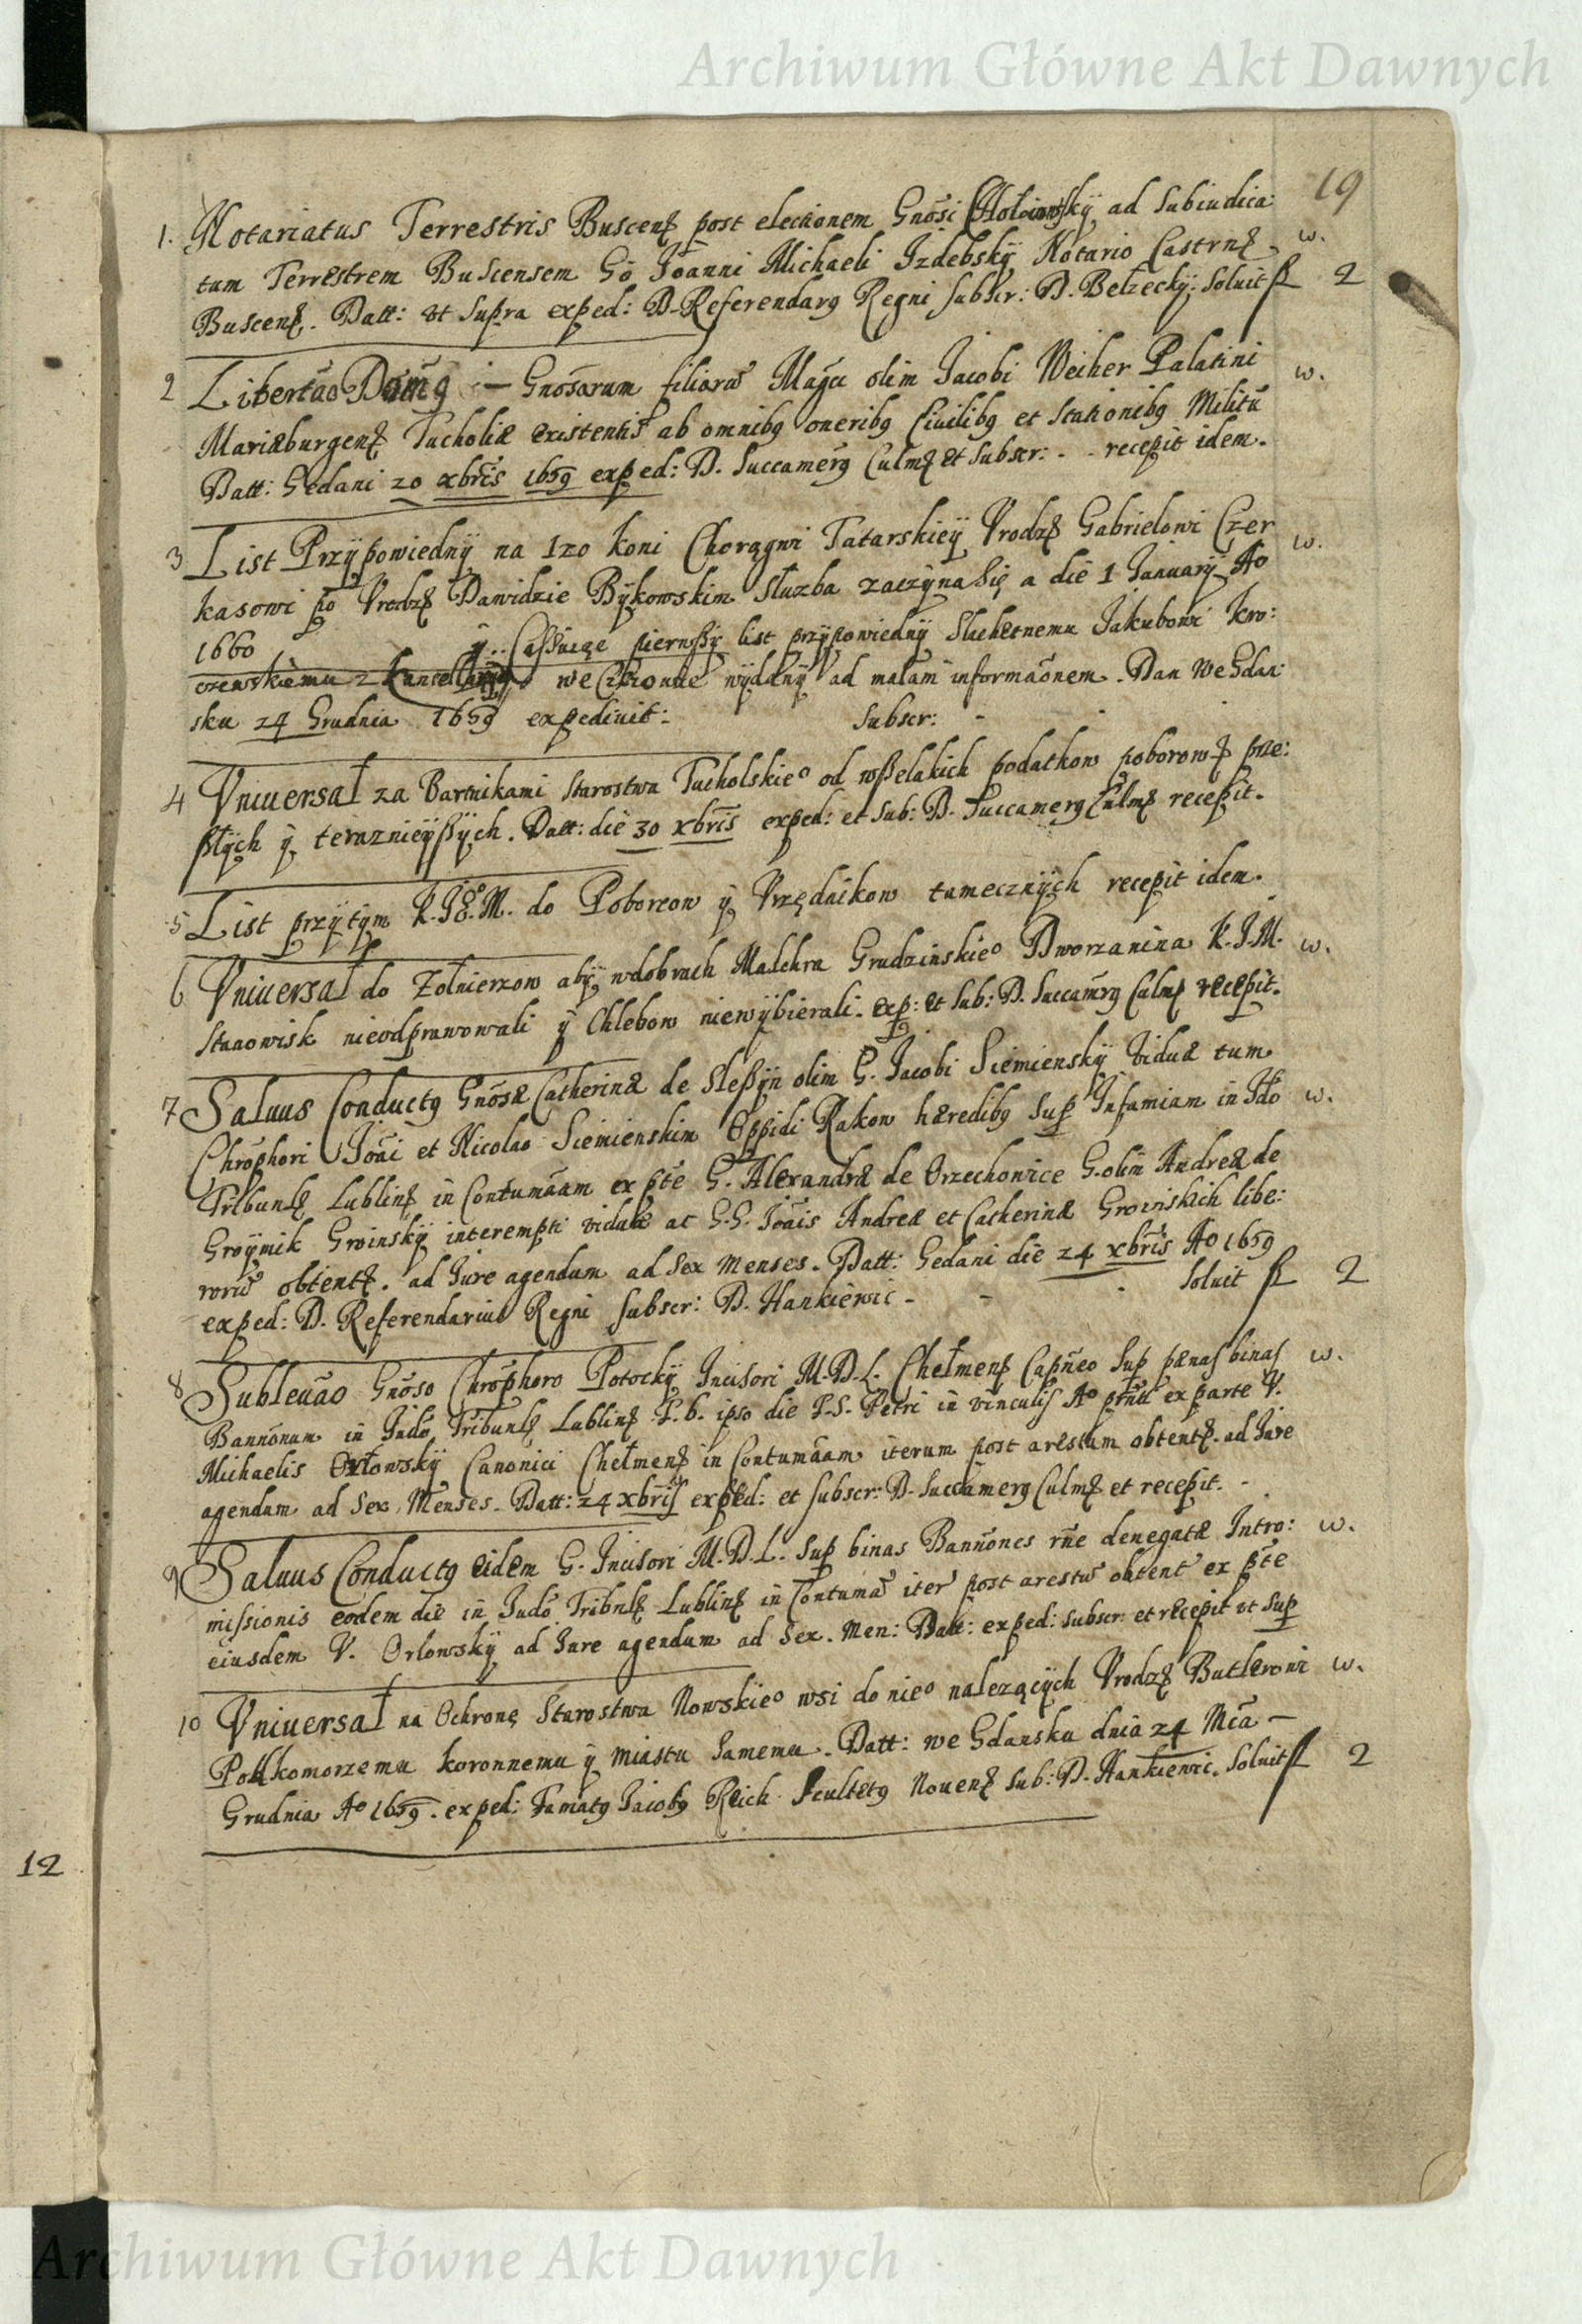 Archiwum Główne Akt Dawnych
19
1. Notariatus Terrestris Buscens post electionem Gnosi ad Subiudica:
tum Terrestrem Buscensem Go Joanni Michaeli Izdebskÿ Notario Castrns w.
Buscens. Datt: vt supra exped: D. Referendarq Regni subscr: D. Belzeckÿ: Soluit fl 2
2 Libertao Domq — Gnosorum filiarū Magci olim Jacobi Weiher Palatini w.
Mariæburgens Tucholiæ existentis ab omnibq oneribq Ciuilibq et Stationibq Militū
Datt: Gedani 20 xbris 1659 exped: D. Succamerq Culms et subscr: - - recepit idem.
3 List Przÿpowiednÿ na 120 koni Chorągwi Tatarskieÿ Vrodz Gabrielowi Czer w.
kasowi po Vrodz Dawidzie Bÿkowskim Służba zaczÿna się a die 1 Januarÿ Ao
1660 ÿ.. Cassuiąc pierwszÿ list przÿpowiednÿ Slachetnemu Jakubowi Kro:
czewskiemu z we nue wÿdanÿ ad malam informaōnem. Dan We Gdan:
sku 24 Grudnia 1659 expediuit: Subscr: -
4 Vniuersał za Bartnikami Starostwa Tucholskieo od wßelakich podatkow poborow prze:
ßłÿch ÿ teraznieÿßÿch. Datt: die 30 xbris exped: et sub: D. Succamerq Culms recepit.
5 List przÿtÿm K.J.M. do Poborcow ÿ Vrzędnikow tamecznÿch recepit idem.
6 Vniuersał do Zołnierzow abÿ w dobrach Malchra Grudzinskieo Dworzanina K.J.M. w.
Stanowisk nieodprawowali ÿ Chlebow niewÿbierali. exp: et sub: D. Succamrq Culms recepit.
7 Saluus Conductq Gnosæ Catherinæ de Sleßÿn olim G. Jacobi Siemienskÿ viduæ tum
Chrophori Joāi et Nicolao Siemienskim Oppidi Rakow hæredibq sup Infamiam in Ido w.
Tribunls Lublins in Contumaām ex pte G. Alexandræ de Orzechowice G. olim Andreæ de
Groÿmik Groinskÿ interempti viduæ ac G.G. Joāis Andreæ et Catherinæ Groinskich libe:
rorū obtents. ad Iure agendum ad sex menses. Datt: Gedani die 24 xbris Ao 1659
exped: D. Referendarius Regni subscr: D. Hankiewic - - - Soluit fl 2
8 Subleuāo Gnōso Chrophoro Potockÿ Incisori M.D.L. Chełmens Capneo sup pænas binas w.
Bannōnum in Iudo Tribunls Lublins F. b. ipso die F.S. Petri in vinculis Ao prnti ex parte V.
Michaelis Orłowskÿ Canonici Chełmens in Contumaām iterum post arestum obtents. ad Iure
agendum ad sex Menses. Datt: 24 xbris exped: et subscr: D. Succamerq Culms et recepit. -
9 Saluus Conductq eidem G. Incisori M.D.L. sup binas Bannōnes rne denegatæ Intro: w.
missionis eodem die in Iudō Tribnls Lublins in Contumā iter post arestū obtent ex pte
eiusdem V. Orłowskÿ ad Iure agendum ad sex. Men: Datt: exped: subscr: et recepit vt sup
10 Vniuersał na Ochronę Starostwa Nowskieo wsi do nieo nalezącÿch Vrodz Butlerowi w.
Podkomorzemu koronnemu ÿ miastu samemu. Datt: we Gdansku dnia 24 Mca —
Grudnia Ao 1659. exped: Famatq Jacobq Reich Scultetq Nouens sub: D. Hankiewic. Soluit fl 2
12
Archiwum Główne Akt Dawnych